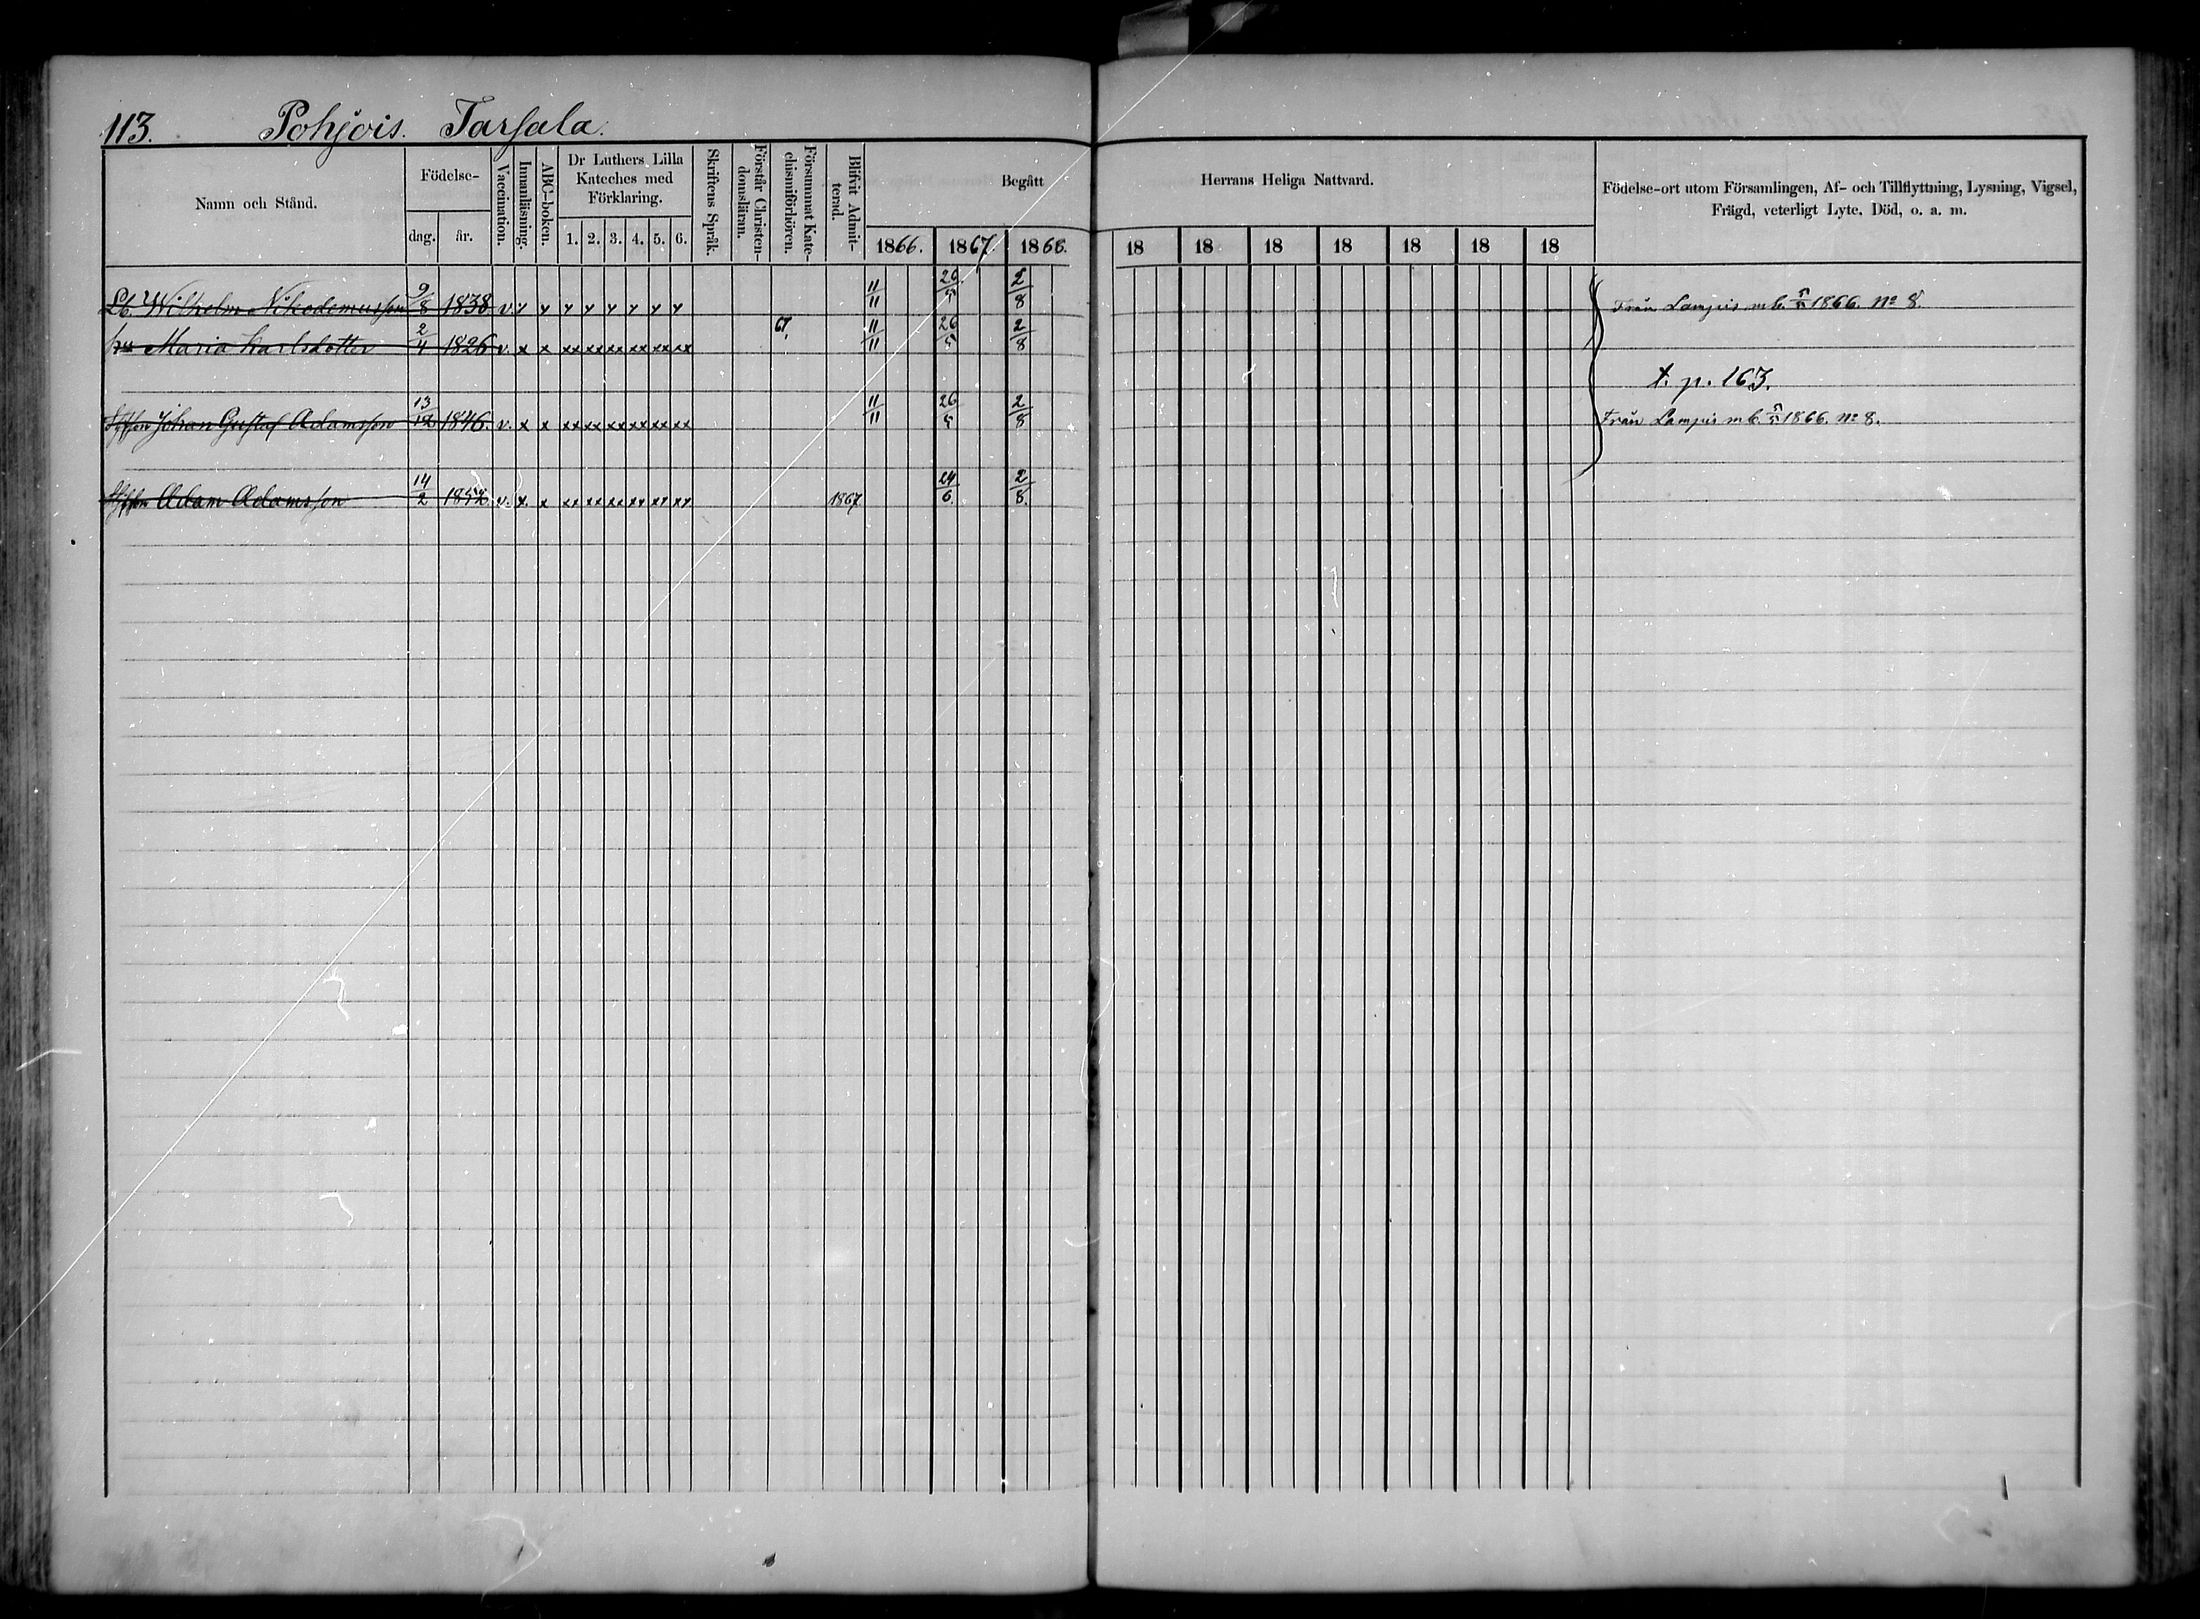 113. Pohjois. Tarsala.
Namn och Stånd.
Födelse-
dag. år.
Vaccination.
Innanläsning.
ABC-boken.
Dr Luthers Lilla
Kateches med
Förklaring.
1. 2. 3. 4. 5. 6.
Skriftens Språk.
Förstår Christen-
domsläran.
Försummat Kate-
chismiförhören.
Blifvit Admit-
terad.
Begått Herrans Heliga Nattvard.
1866. 1867. 1868. 18 18 18 18 18 18 18
Födelse-ort utom Församlingen, Af- och Tillflyttning, Lysning, Vigsel,
Frägd, veterligt Lyte, Död, o. a. m.
Lb. Wilhelm Nikodemusson 9/8 1838 v. y y y y y y y y 11/11 26/5 2/8 Från Lampis mb. 5/5 1866. No 8.
hu Maria Karlsdotter 2/4 1826 v. x x xx xx xx xx xx xx 67. 11/11 26/5 2/8
t. p. 163.
Johan Gustaf Adamsson 13/12 1846. v. x x xx xx xx xx xx xx 11/11 26/5 2/8 Från Lampis mb. 5/5 1866. No 8.
Adam Adamsson 14/2 1852 v. x. x xx xx xx xx xx xx 1867 24/6. 2/8.